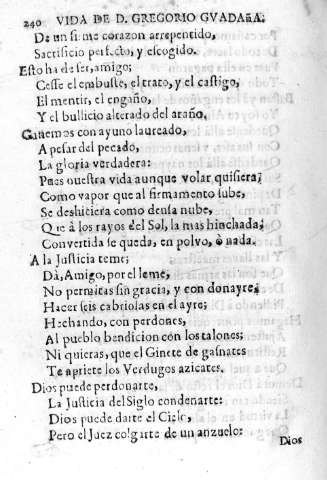 240 VIDA DE D. GREGORIO GVADAÑA;
De un firme corazon arrepentido,
Sacrificio perfecto, y escogido.
Esto ha de ser, amigo;
Cesse el embuste, el trato, y el castigo,
El mentir, el engaño,
Y el bullicio alterado del araño,
Ganemos con ayuno laureado,
A pesar del pecado,
La gloria verdadera:
Pues nuestra vida aunque volar quisiera,
Como vapor que al firmamento sube,
Se deshiciera como densa nube,
Que à los rayos del Sol, la mas hinchada,
Convertida se queda, en polvo, ò nada.
A la Justicia teme;
Dà, Amigo, por el leme,
No permitas sin gracia, y con donayre,
Hacer seis cabriolas en el ayre;
Hechando, con perdones,
Al pueblo bendicion con los talones;
Ni quieras, que el Ginete de gasnates
Te apriete los Verdugos azicates.
Dios puede perdonarte,
La Justicia del Siglo condenarte:
Dios puede darte el Cielo,
Pero el Juez colgarte de un anzuelo:
Dios